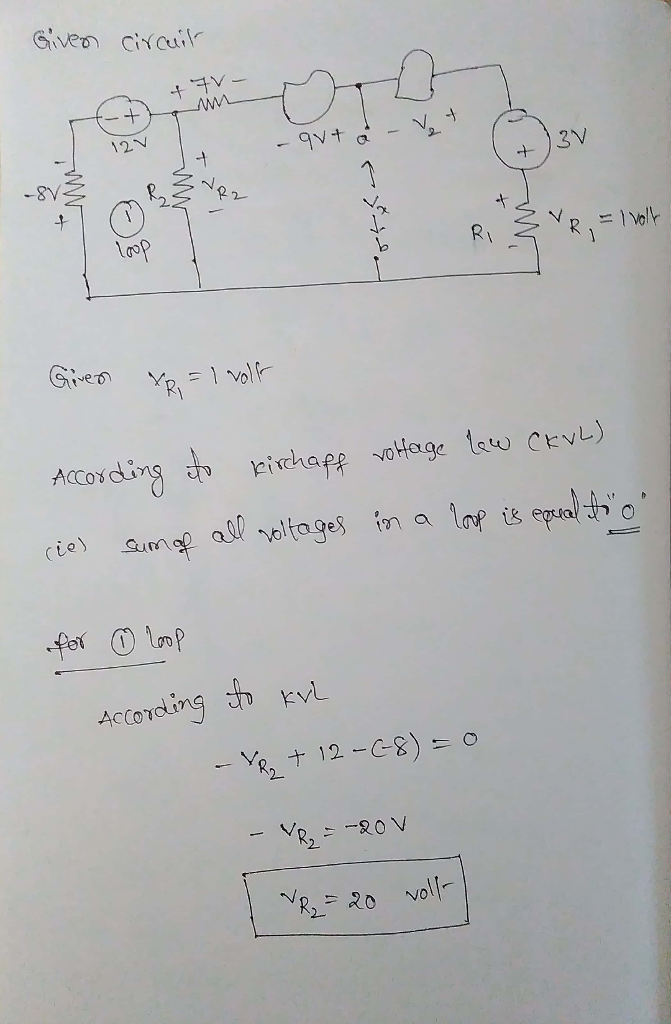 Given circuit
+ 7V -
- +
12V
- 9V + a - V2 +
-
+
3V
-
-8V
+
R2
+
VR2
-
1
loop
Vx
b
R1
+
-
VR1 = 1 volt
Given VR1 = 1 volt
According to kirchaff voltage law (KVL)
(ie) sum of all voltages in a loop is equal to "0"
for ① loop
According to KVL
- VR2 + 12 - (-8) = 0
- VR2 = -20 V
VR2 = 20 volt